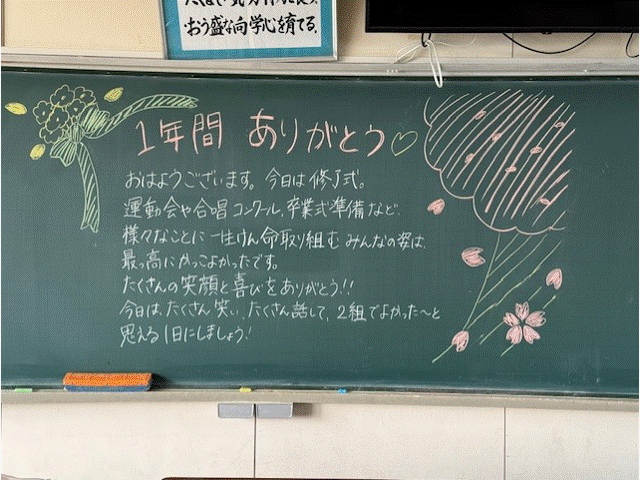 ・おう盛な向学心を育てる。
1年間 ありがとう♡
おはようございます。今日は修了式。
運動会や合唱コンクール、卒業式準備など、
様々なことに一生けん命取り組むみんなの姿は、
最っ高にかっこよかったです。
たくさんの笑顔と喜びをありがとう!!
今日は、たくさん笑い、たくさん話して、2組でよかった〜と
思える1日にしましょう!